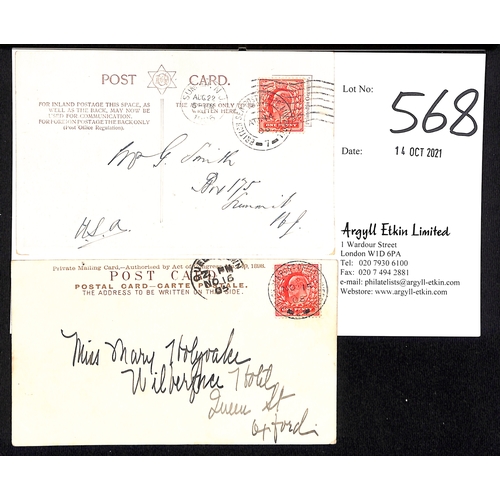 POST CARD.
FOR INLAND POSTAGE THIS SPACE, AS
WELL AS THE BACK, MAY NOW BE
USED FOR COMMUNICATION.
FOR FOREIGN POSTAGE THE BACK ONLY
(Post Office Regulation).
THE ADDRESS ONLY TO BE
WRITTEN HERE.
AUG 22
G. Smith
Box 175
Summit
U.S.A.
N.J.
Private Mailing Card.—Authorised by Act of Congress, 1898.
POST CARD.
POSTAL CARD—CARTE POSTALE.
THE ADDRESS TO BE WRITTEN ON THIS SIDE.
NO 16
Miss Mary Holyoake
Wilberforce Hotel
Queen St
Oxford
Lot No:
568
Date:
14 OCT 2021
Argyll Etkin Limited
1 Wardour Street
London W1D 6PA
Tel: 020 7930 6100
Fax: 020 7 494 2881
e-mail: philatelists@argyll-etkin.com
Website: www.argyll-etkin.com